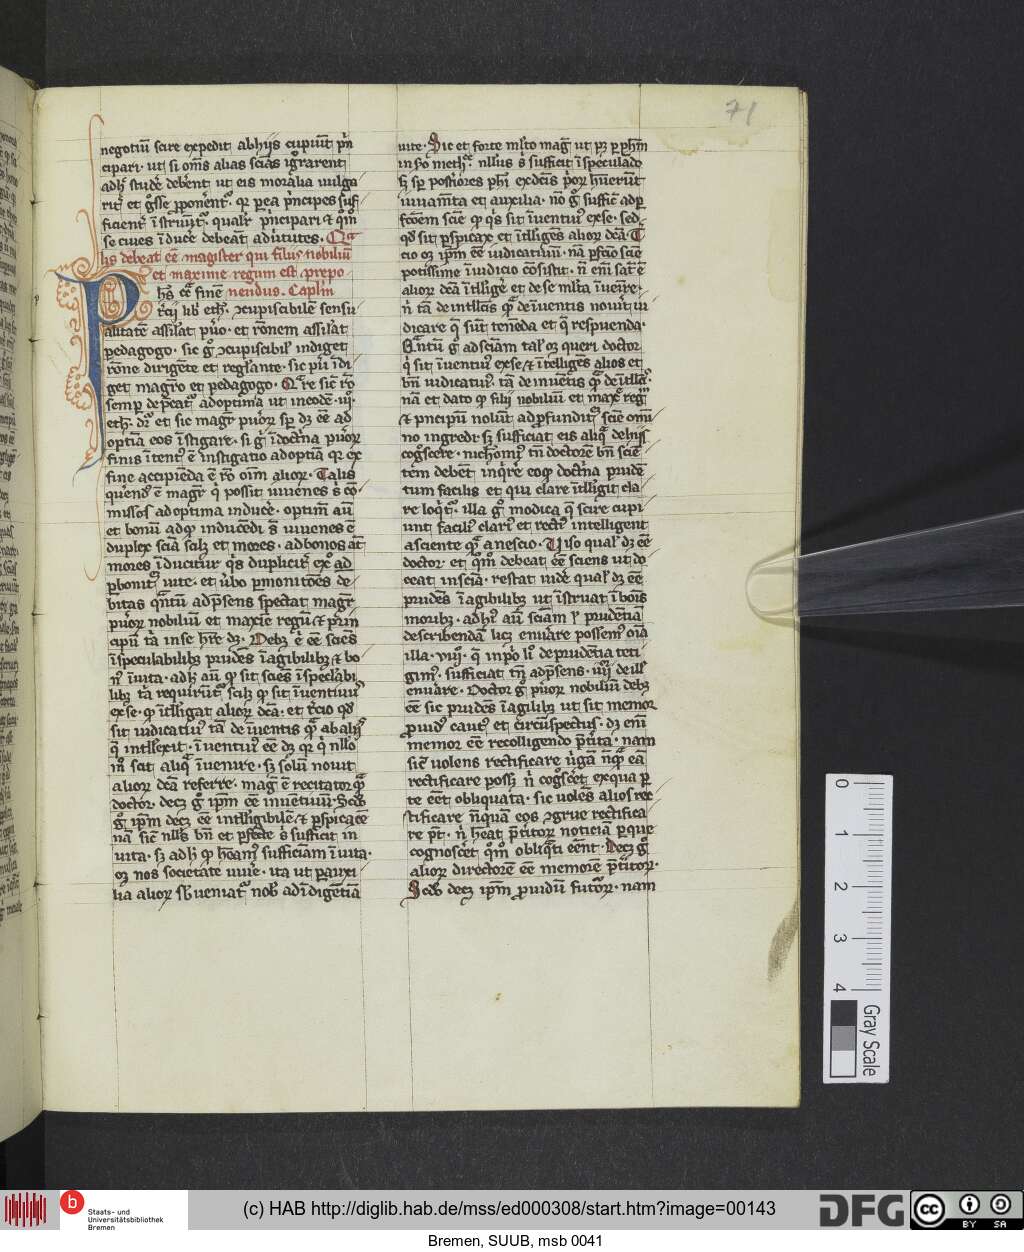 71
negotiū scire expedit ab hijs cupiūt pⁱn
cipari · ut si om̄s alias scīas iḡrarent
adh̄ studē debēnt ut eis moralia vulga
ficient̄ īstruūt᷑ · qualit̄ pⁱncipari ⁊ qōm
se ciues īducē debeāt ad uirtutes · Qua
lis debeat eē magister qui filijs nobiliū
et maxime regum est prepo
nendus . Caplm̄
P hs̄ circa finē
t̄cij libri eth̄ · ↄcupiscibilē sensu
alitatē assilāt puero · et rōnem assilāt
pedagogo · sic g̊ ↄcupiscibil indiget
rōne dirigēte et regl̄ante · sic pūi īdi
get magr̄o et pedagogo · Quare sicut rō
semper deprecat᷑ ad optima ut in eodē
eth̄ · dr̄ et sic magr̄ pūor semper dꝫ eē ad
optīa eos īstigare · si g̊ īdoctⁱna pūor
finis ītent᷑ ē instigatio ad optīa qr ex
fine accipiēda ē rō oīm alior · Talis
quēnds ē magr̄ qui possit iuuenes sibi cō
missos ad optima inducē · optim̄ aūt
et bonū ad qd̄ inducēdi st̄ iuuenes ē
duplex scīa scilꝫ et mores · ad bonos aūt
mores īducitur quis dupliciter exo ad
p bonitatē uite · et ūbo p monitōes de
bitas quātū ad p̄sens spectat magr̄
pūor nobiliū et maxīe regū ⁊ prin
cipū tⁱa in se hr̄e dꝫ · Debet enī eē sciēs
ī speculabilibꝫ prudēs ī agibilibꝫ ⁊ bo
nus ī uita · ad h̄ aūt qd̄ sit sciēs ī specl̄abi
libꝫ tⁱa requirūt᷑ scilꝫ qd̄ sit īuentiuus
ex se · qd̄ ītlligat alior dc̄a · et tercio qd̄
sit iudicatiuus tā de īuentis quā ab alijs
q̄ intll̄exit · īuentiuus eē dꝫ qr qui nllō
mō scit aliqua īuenire · sꝫ solū nouit
alior dc̄a referre · magis ē recitator quā
doctor · decꝫ g̊ ip̄m eē inuentiuū · Scd̄o
g̊ ip̄m decꝫ eē intelligibilē ⁊ p̄spicacē
nā sic nlls̄ bn̄ et pfecte sibi sufficit in
uita · sꝫ adh̄ qd̄ hōamus sufficiam ī uita ·
oꝫ nos societate uiuē · ita ut p auxi
lia alior sb̄ueniat᷑ nob̄ ad īdigētiā
uite · Sic et forte mlto magis ut pꝫ p phm̄
in scd̄o meth̄ · nllus sibi sufficit ī speculādo
sꝫ semper posteriores phī ex dc̄is pⁱor huerūt
iuuamīta et auxilia · nō g̊ sufficit ad per
fcōem scīe qd̄ quis sit īuentiuus ex se · sed
qd̄ sit p̄spicax et ītlligēs alior dc̄a · T
cio oꝫ ip̄m eē iudicatiuū · nā p̄fcio scīe
potissime ī iudicio cōsistit · nō enī satis ē
alior dc̄a ītlligē et de se mlta īuenire ·
nisi tā de intll̄cis quā de īuentis nouit iu
dicare q̄ sūt tenēda et q̄ respuenda ·
Quātū g̊ ad scīam talis oꝫ queri doctor
qui sit īuentiuus ex se ⁊ ītelligēs alios et
bn̄ iudicatiuus · tā de inuētis quā de ītll̄cis
nā et dato qd̄ filij nobiliū et maxīe regū
⁊ principū nolūt ad p̄fundit᷑ scīe om̄i
no ingredi sꝫ sufficiat eis aliqua de hijs
cogscere · nichomius tn̄ doctorē bn̄ scīe
tem debēt inqⁱrē eo qd̄ doctⁱna prudē
tum facilis et qui clare ītlligit cla
re loqit᷑ · illa g̊ modica q̄ scire cupi
unt facilius clarius et rectius intelligent
a sciente quā a nescio · Uiso qualis dꝫ eē
doctor · et quōm debeat eē sciens ut do
ceat in scīa · restat uidē qualis dꝫ eē
prudēs ī agibilibꝫ ut īstruat ī bonis
moribꝫ · ad hāc aūt scīam prudētiā
describendā licꝫ enūrare possemus oīa
illa · viij · q̄ in pⁱo libro de prudētia teti
gimus · sufficiat tn̄ ad p̄sens · iiij de illis
enūrare · Doctor g̊ pūor nobiliū debꝫ
eē sic prudēs ī agilibꝫ ut sit memor
prouidus cautus et circūspectus · dꝫ enī
memor eē recolligendo p̄tⁱita · nam
sicut uolens rectificare uⁱgā nūquam eā
rectificare possꝫ nisi cogsceret ex qua par
te eēt obliquata · sic uolēs alios rec
tificare nūquā eos ↄgrue rectifica
re pōt · nisi heat p̄titor noticiā per que
cognoscet quōm obliquati eent · Decꝫ g̊
alior directorē eē memorē p̄titor ·
Scd̄o decꝫ ip̄m prouidū futuror · nam
0 1 2 3 4
Gray Scale
b
Staats- und
Universitätsbibliothek
Bremen
(c) HAB http://diglib.hab.de/mss/ed000308/start.htm?image=00143
DFG
cc
BY SA
Bremen, SUUB, msb 0041